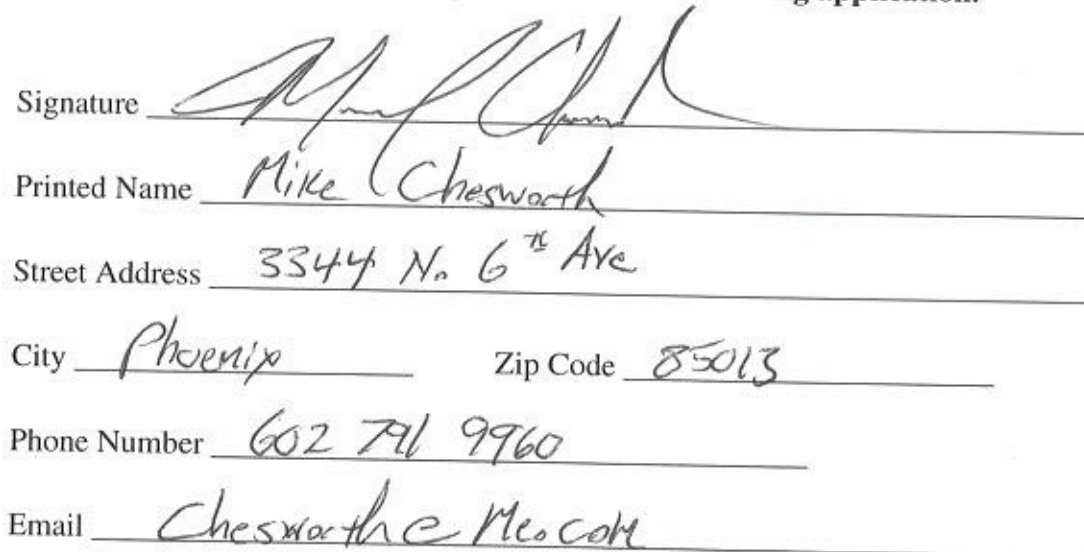 g application.
Signature
Printed Name Mike Chesworth
Street Address 3344 No 6th Ave
City Phoenix Zip Code 85013
Phone Number 602 791 9960
Email Chesworth@Me.com